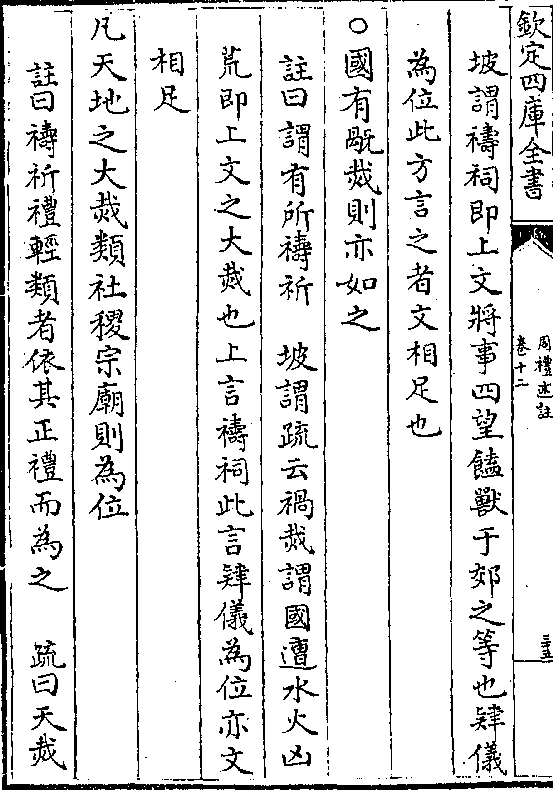 欽定四庫全書
周禮述註
卷十二
三五
坡謂禱祠即上文將事四望饁獸于郊之等也肄儀
為位此方言之者文相足也
○國有旤烖則亦如之
註曰謂有所禱祈　坡謂疏云禍烖謂國遭水火凶
荒即上文之大烖也上言禱祠此言肄儀為位亦文
相足
凡天地之大烖類社稷宗廟則為位
註曰禱祈禮輕類者依其正禮而為之　疏曰天烖